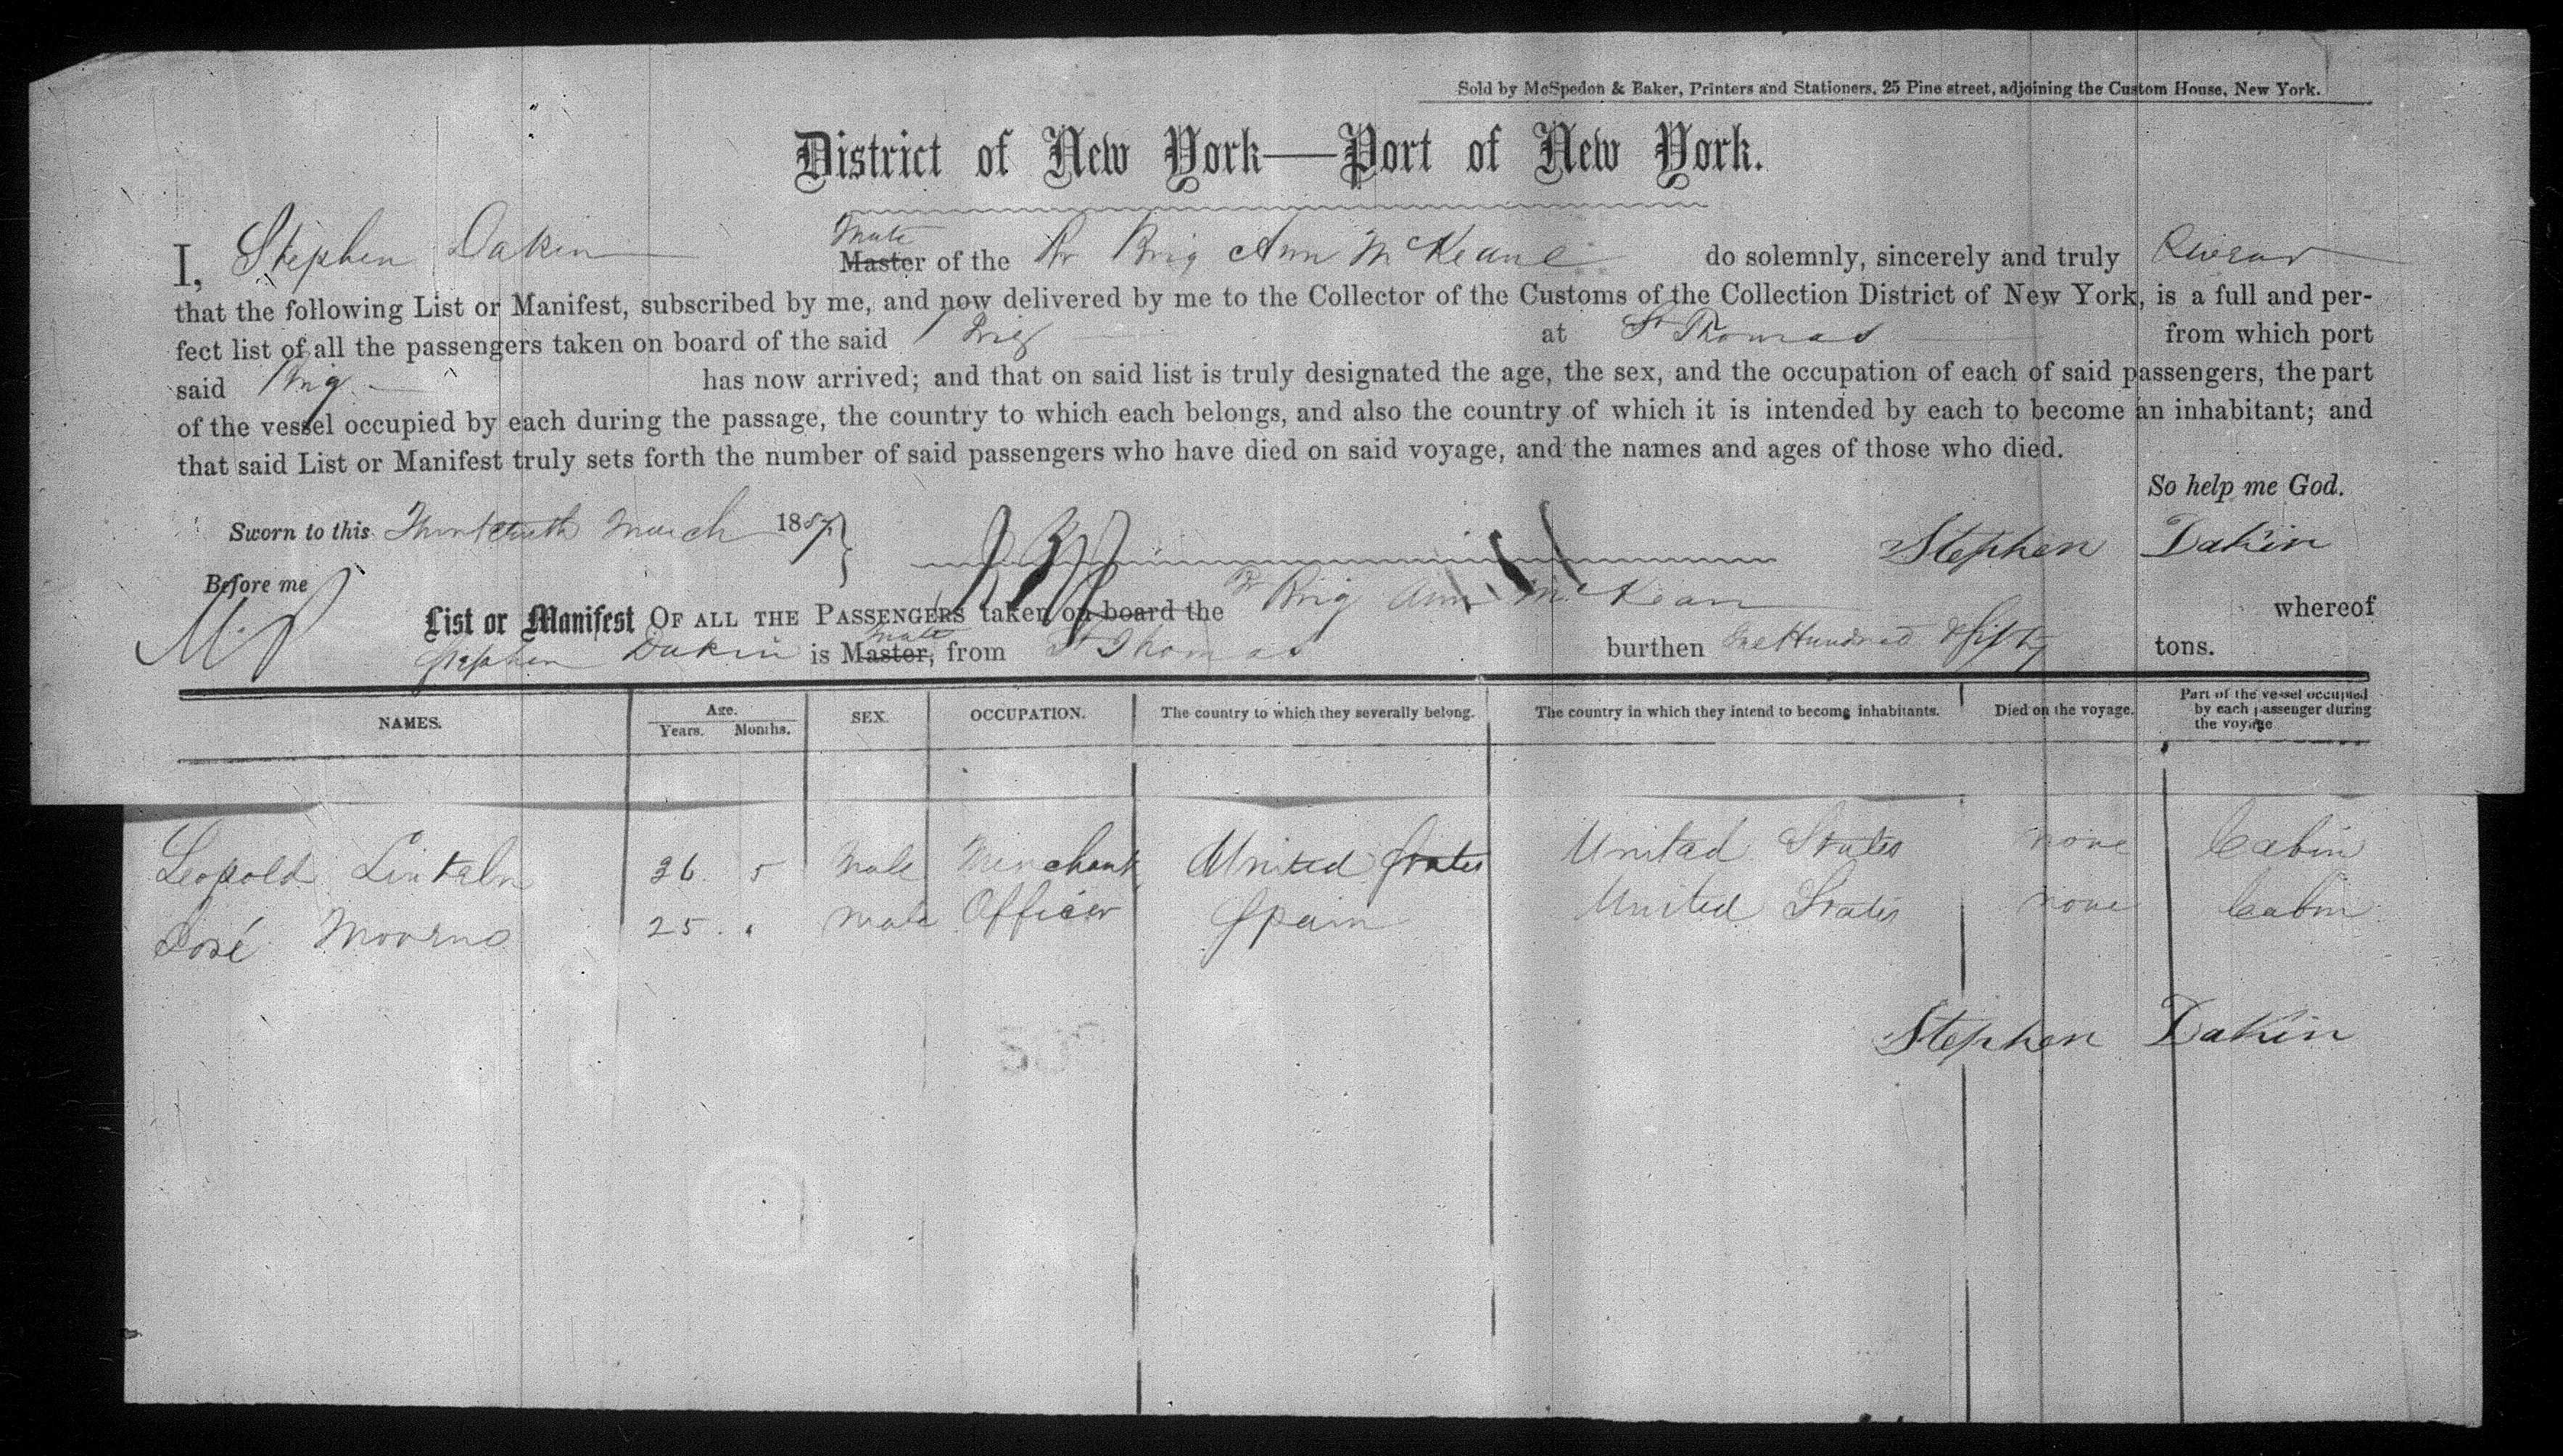 Sold by McSpedon & Baker, Printers and Stationers, 25 Pine street, adjoining the Custom House, New York.
District of New York—Port of New York.
I, Stephen Dakin Mate Master of the Br Brig Ann McKeane do solemnly, sincerely and truly Swear
that the following List or Manifest, subscribed by me, and now delivered by me to the Collector of the Customs of the Collection District of New York, is a full and per-
fect list of all the passengers taken on board of the said Brig at St Thomas from which port
said Brig has now arrived; and that on said list is truly designated the age, the sex, and the occupation of each of said passengers, the part
of the vessel occupied by each during the passage, the country to which each belongs, and also the country of which it is intended by each to become an inhabitant; and
that said List or Manifest truly sets forth the number of said passengers who have died on said voyage, and the names and ages of those who died.
So help me God.
Sworn to this March 1857 Stephen Dakin
Before me
List or Manifest OF ALL THE PASSENGERS taken on board the Br Brig Ann McKean whereof
Stephen Dakin is Mate Master, from St Thomas burthen One Hundred & fifty tons.
NAMES. Age. Years. Months. SEX. OCCUPATION. The country to which they severally belong. The country in which they intend to become inhabitants. Died on the voyage. Part of the vessel occupied by each passenger during the voyage
Leopold 36 5 Male Merchant United States United States none Cabin
José Moorno 25 Male Officer Spain United States none Cabin
Stephen Dakin